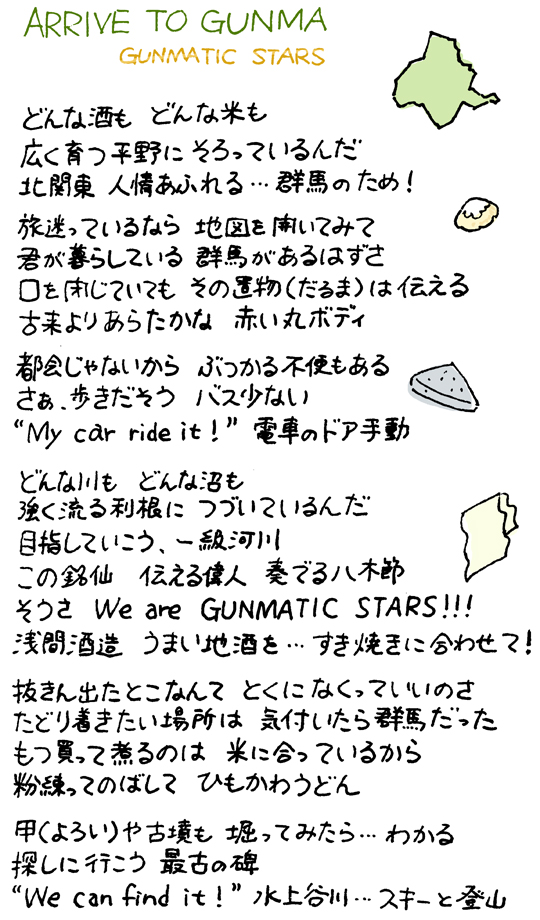 ARRIVE TO GUNMA
GUNMATIC STARS
どんな酒も どんな米も
広く育つ平野に そろっているんだ
北関東 人情あふれる…群馬のため！
旅迷っているなら 地図を開いてみて
君が暮らしている 群馬があるはずさ
口を閉じていても その置物（だるま）は伝える
古来よりあらたかな 赤い丸ボディ
都会じゃないから ぶつかる不便もある
さぁ、歩きだそう バス少ない
“My car ride it！” 電車のドア手動
どんな川も どんな沼も
強く流る利根に つづいているんだ
目指していこう、一級河川
この銘仙 伝える偉人 奏でる八木節
そうさ We are GUNMATIC STARS!!!
浅間酒造 うまい地酒を…すき焼きに合わせて！
抜きん出たとこなんて とくになくっていいのさ
たどり着きたい場所は 気付いたら群馬だった
もつ買って煮るのは 米に合っているから
粉練ってのばして ひもかわうどん
甲（よろい）や古墳も 堀ってみたら…わかる
探しに行こう 最古の碑
“We can find it！” 水上谷川…スキーと登山